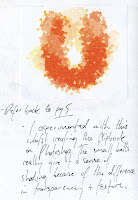 - Refer back to pg 5
- I experimented with this
whilst creating the
on Photoshop, the small walls
really give it a sense of
shading because of the difference
in transparency & texture.